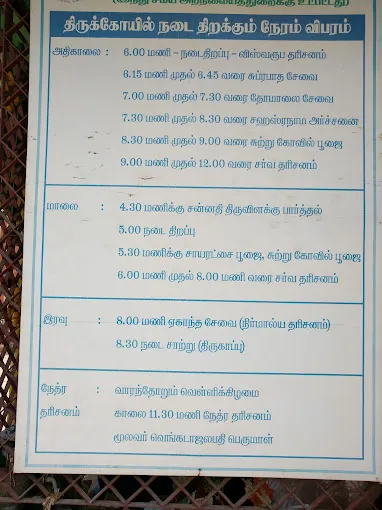 (இந்து சமய அறநிலையத்துறைக்கு உட்பட்டது)
திருக்கோயில் நடை திறக்கும் நேரம் விபரம்
அதிகாலை : 6.00 மணி – நடைதிறப்பு – விஸ்வரூப தரிசனம்
6.15 மணி முதல் 6.45 வரை சுப்ரபாத சேவை
7.00 மணி முதல் 7.30 வரை தோமாலை சேவை
7.30 மணி முதல் 8.30 வரை சஹஸ்ரநாம அர்ச்சனை
8.30 மணி முதல் 9.00 வரை சுற்று கோவில் பூஜை
9.00 மணி முதல் 12.00 வரை சர்வ தரிசனம்
மாலை : 4.30 மணிக்கு சன்னதி திருவிளக்கு பார்த்தல்
5.00 நடை திறப்பு
5.30 மணிக்கு சாயரட்சை பூஜை, சுற்று கோவில் பூஜை
6.00 மணி முதல் 8.00 மணி வரை சர்வ தரிசனம்
இரவு : 8.00 மணி ஏகாந்த சேவை (நிர்மால்ய தரிசனம்)
8.30 நடை சாற்று (திருகாப்பு)
நேத்ர : வாரந்தோறும் வெள்ளிக்கிழமை
தரிசனம் காலை 11.30 மணி நேத்ர தரிசனம்
மூலவர் வெங்கடாஜலபதி பெருமாள்